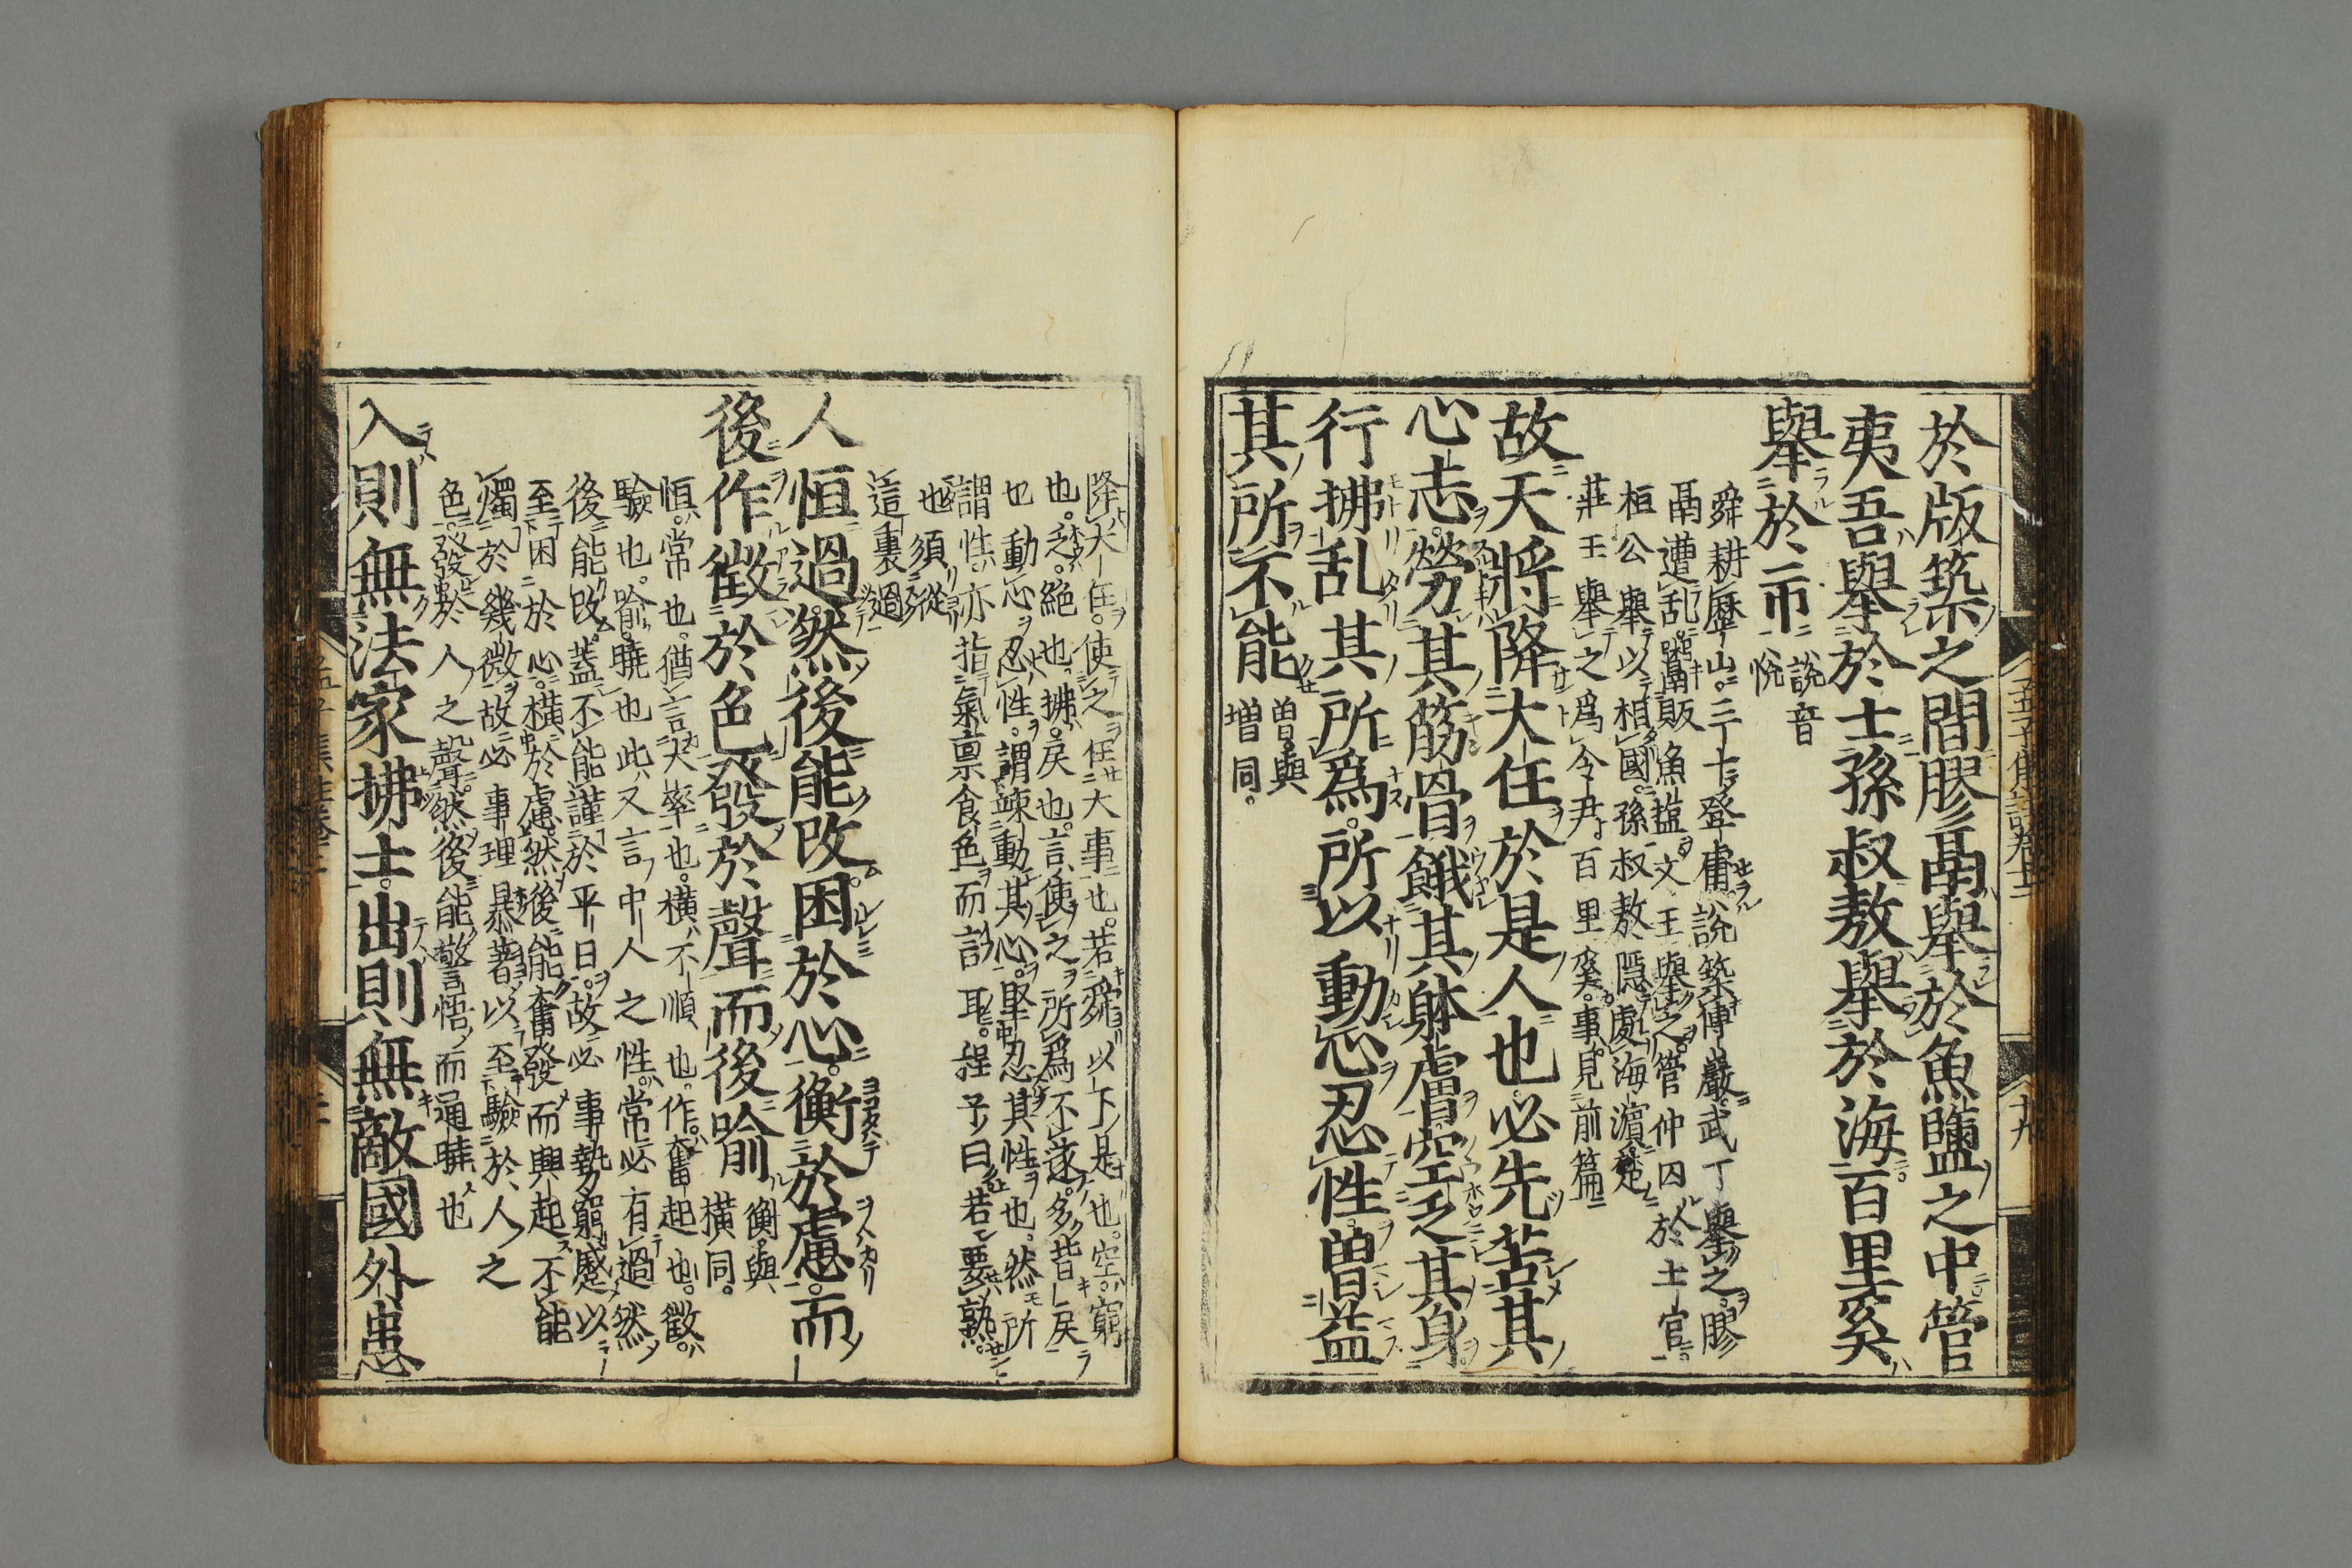 於版築之間膠鬲舉於魚鹽之中管
夷吾舉於士孫叔敖舉於海百里奚
舉於市
說音
悅
舜耕歷山三十登庸說築傅巖武丁舉之膠
鬲遭乱鬻販魚塩文王舉之管仲囚於士官
桓公舉以相國孫叔敖隱處海濱楚
莊王舉之爲令尹百里奚事見前篇
故天將降大任於是人也必先苦其
心志勞其筋骨餓其躰膚空乏其身
行拂乱其所爲所以動心忍性曽益
其所不能
曽與
增同。
降大任。使之任大事也。若舜以下是也。空窮
也。乏。絶也。拂。戾也。言使之所爲不遂。多背戾
也動心忍性。謂竦動其心。堅忍其性也。然所
謂性亦指氣禀食色而言耳。程子曰若要熟。
也須從
這裏過
人恒過然後能改困於心。衡於慮。而
後作徴於色發於聲而後喻
衡與
橫同。
恒。常也。猶言大率也。橫不順也。作。奮起也。徴。
驗也。喻。曉也此又言中人之性。常必有過然
後能改。蓋不能謹於平日。故必事勢窮蹙以
至困於心。橫於慮。然後能奮發而興起不能
燭於幾微故必事理暴著以至驗於人之
色。發於人之聲。然後能警悟而通曉也
入則無法家拂士出則無敵國外患
十九